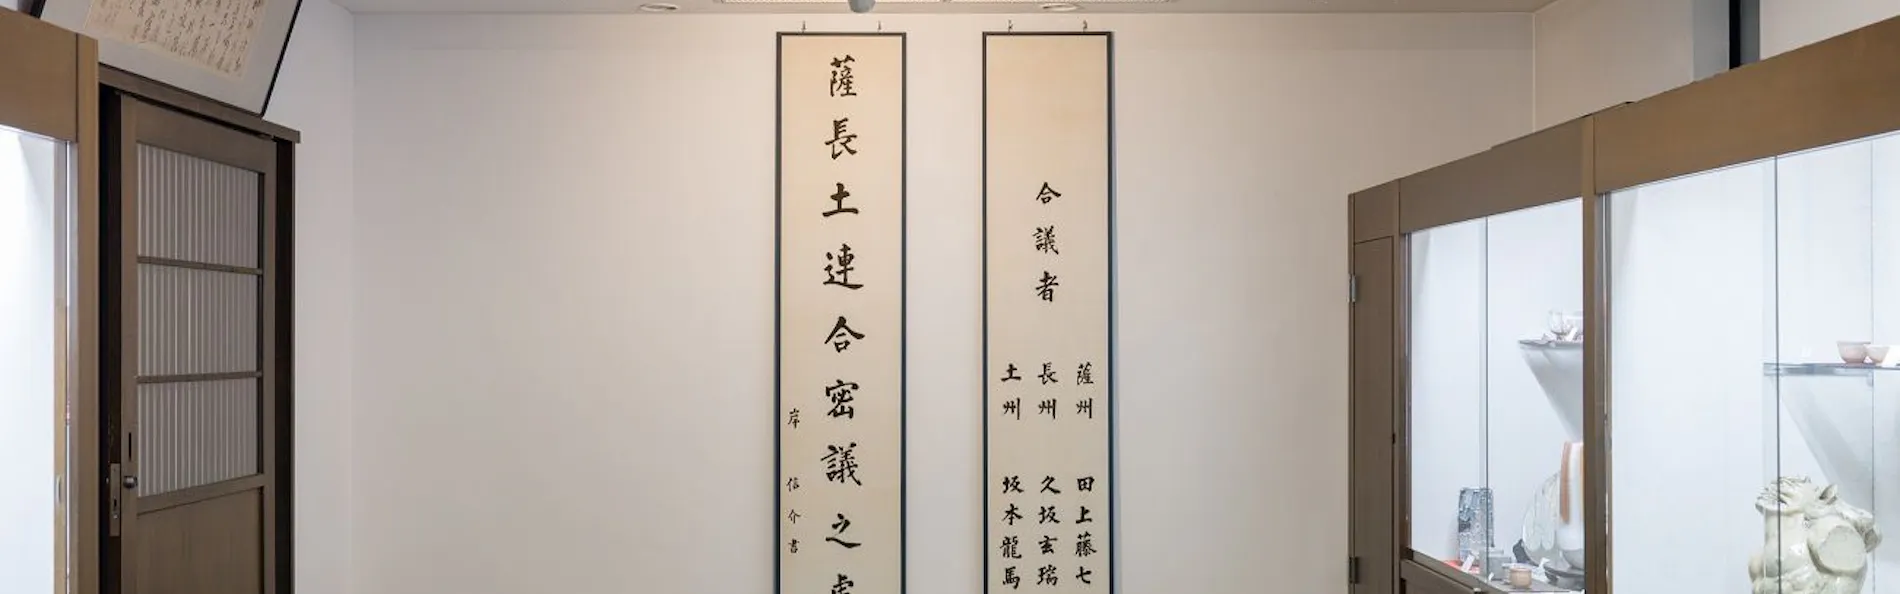 合議者
薩州 田上藤七
長州 久坂玄瑞
土州 坂本龍馬
薩長土連合密議之處
岸信介書